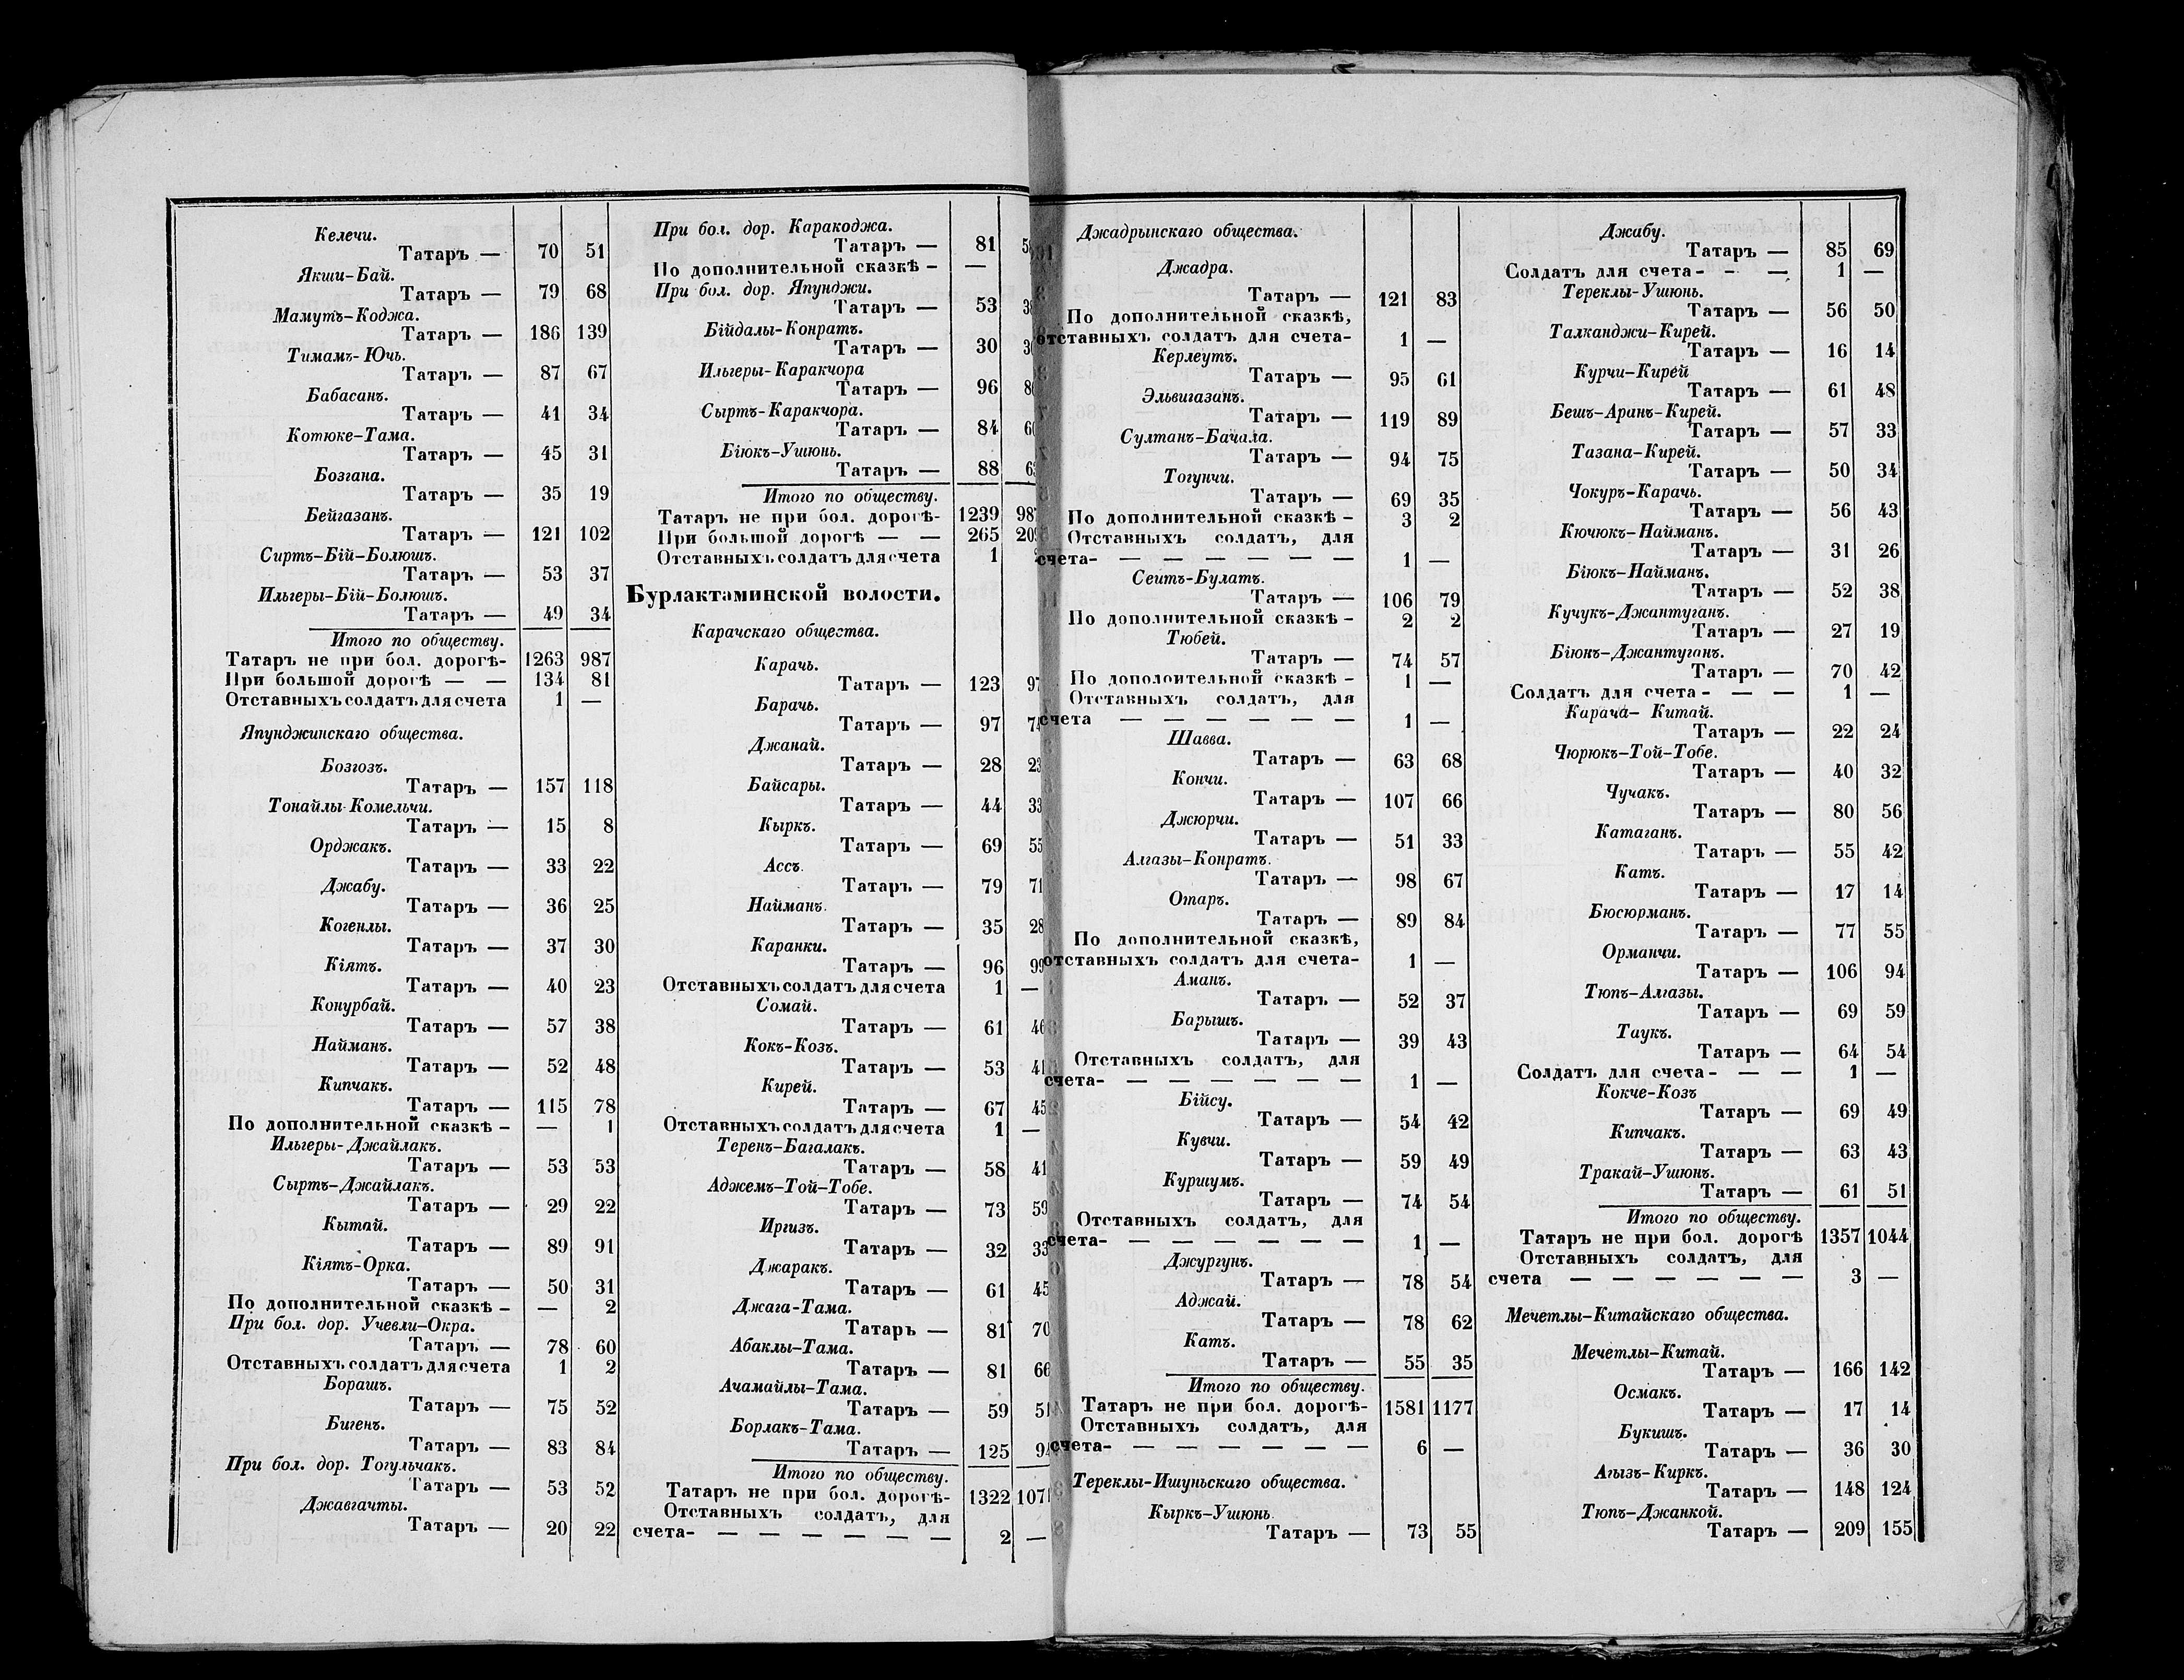 Келечи.
Татаръ — 70 51
Якши-Бай.
Татаръ — 79 68
Мамутъ-Коджа.
Татаръ — 186 139
Тимамъ-Ючь.
Татаръ — 87 67
Бабасанъ.
Татаръ — 41 34
Котюке-Тама.
Татаръ — 45 31
Бозгана.
Татаръ — 35 19
Бейгазанъ.
Татаръ — 121 102
Сиртъ-Бій-Болюшъ.
Татаръ — 53 37
Ильгеры-Бій-Болюшъ.
Татаръ — 49 34
Итого по обществу.
Татаръ не при бол. дорогѣ- 1263 987
При большой дорогѣ — — 134 81
Отставныхъ солдатъ для счета 1 —
Япунджинскаго общества.
Бозгозъ.
Татаръ — 157 118
Тонайлы-Комельчи.
Татаръ — 15 8
Орджакъ.
Татаръ — 33 22
Джабу.
Татаръ — 36 25
Когенлы.
Татаръ — 37 30
Кіятъ.
Татаръ — 40 23
Конурбай.
Татаръ — 57 38
Найманъ.
Татаръ — 52 48
Кипчакъ.
Татаръ — 115 78
По дополнительной сказкѣ - — 1
Ильгеры-Джайлакъ.
Татаръ — 53 53
Сыртъ-Джайлакъ.
Татаръ — 29 22
Кытай.
Татаръ — 89 91
Кіятъ-Орка.
Татаръ — 50 31
По дополнительной сказкѣ - — 2
При бол. дор. Учевли-Окра.
Татаръ — 78 60
Отставныхъ солдатъ для счета 1 2
Борашъ.
Татаръ — 75 52
Бигенъ.
Татаръ — 83 84
При бол. дор. Тогульчакъ.
Татаръ — 53 52
Джавгачты.
Татаръ — 20 22
При бол. дор. Каракоджа.
Татаръ — 81
По дополнительной сказкѣ - —
При бол. дор. Япунджи.
Татаръ — 53
Бійдалы-Конратъ.
Татаръ — 30
Ильгеры-Каракчора
Татаръ — 96
Сыртъ-Каракчора.
Татаръ — 84
Біюкъ-Ушюнь.
Татаръ — 88
Итого по обществу.
Татаръ не при бол. дорогѣ- 1239 987
При большой дорогѣ — — 265 209
Отставныхъ солдатъ для счета 1
Бурлактаминской волости.
Карачскаго общества.
Карачь.
Татаръ — 123 97
Барачь.
Татаръ — 97 74
Джанай.
Татаръ — 28 23
Байсары.
Татаръ — 44 33
Кыркъ.
Татаръ — 69 55
Ассъ.
Татаръ — 79 71
Найманъ.
Татаръ — 35 28
Каранки.
Татаръ — 96 99
Отставныхъ солдатъ для счета 1 —
Сомай.
Татаръ — 61 46
Кокъ-Козъ.
Татаръ — 53 41
Кирей.
Татаръ — 67 45
Отставныхъ солдатъ для счета 1 —
Теренъ-Багалакъ.
Татаръ — 58 41
Аджемъ-Той-Тобе.
Татаръ — 73 59
Иргизъ.
Татаръ — 32 33
Джаракъ.
Татаръ — 61 45
Джага-Тама.
Татаръ — 81 70
Абаклы-Тама.
Татаръ — 81 66
Ачамайлы-Тама.
Татаръ — 59 51
Борлакъ-Тама.
Татаръ — 125 94
Итого по обществу.
Татаръ не при бол. дорогѣ- 1322 1071
Отставныхъ солдатъ, для
счета- — — — — — — 2 —
Джадрынскаго общества.
Джадра.
Татаръ — 121 83
По дополнительной сказкѣ,
отставныхъ солдатъ для счета- 1 —
Керлеутъ.
Татаръ — 95 61
Эльвигазанъ.
Татаръ — 119 89
Султанъ-Бачала.
Татаръ — 94 75
Тогунчи.
Татаръ — 69 35
По дополнительной сказкѣ - 3 2
Отставныхъ солдатъ, для
счета- — — — — — — 1 —
Сеитъ-Булатъ.
Татаръ — 106 79
По дополнительной сказкѣ - 2 2
Тюбей.
Татаръ — 74 57
По дополоительной сказкѣ - 1 —
Отставныхъ солдатъ, для
счета — — — — — — 1 —
Шавва.
Татаръ — 63 68
Кончи.
Татаръ — 107 66
Джюрчи.
Татаръ — 51 33
Алгазы-Конратъ.
Татаръ — 98 67
Отаръ.
Татаръ — 89 84
По дополнительной сказкѣ,
отставныхъ солдатъ для счета- 1 —
Аманъ.
Татаръ — 52 37
Барышъ.
Татаръ — 39 43
Отставныхъ солдатъ, для
счета- — — — — — — 1 —
Бійсу.
Татаръ — 54 42
Кувчи.
Татаръ — 59 49
Куршумъ.
Татаръ — 74 54
Отставныхъ солдатъ, для
счета- — — — — — — 1 —
Джургунъ.
Татаръ — 78 54
Аджай.
Татаръ — 78 62
Катъ.
Татаръ — 55 35
Итого по обществу.
Татаръ не при бол. дорогѣ- 1581 1177
Отставныхъ солдатъ, для
счета- — — — — — — 6 —
Тереклы-Ишуньскаго общества.
Кыркъ-Ушюнь
Татаръ — 73 55
Джабу.
Татаръ — 85 69
Солдатъ для счета - - — 1 —
Тереклы-Ушюнь.
Татаръ — 56 50
Талканджи-Кирей.
Татаръ — 16 14
Курчи-Кирей
Татаръ — 61 48
Бешъ-Аранъ-Кирей.
Татаръ — 57 33
Тазана-Кирей.
Татаръ — 50 34
Чокуръ-Карачь.
Татаръ — 56 43
Кючюкъ-Найманъ.
Татаръ — 31 26
Біюкъ-Найманъ.
Татаръ — 52 38
Кучукъ-Джантуганъ.
Татаръ — 27 19
Біюкъ-Джантуганъ.
Татаръ — 70 42
Солдатъ для счета - — — 1 —
Карача- Китай.
Татаръ — 22 24
Чюрюкъ-Той-Тобе.
Татаръ — 40 32
Чучакъ.
Татаръ — 80 56
Катаганъ.
Татаръ — 55 42
Катъ.
Татаръ — 17 14
Бюсюрманъ.
Татаръ — 77 55
Орманчи.
Татаръ — 106 94
Тюпъ-Алгазы.
Татаръ — 69 59
Таукъ.
Татаръ — 64 54
Солдатъ для счета - — — 1 —
Кокче-Козъ
Татаръ — 69 49
Кипчакъ.
Татаръ — 63 43
Тракай-Ушюнъ.
Татаръ — 61 51
Итого по обществу.
Татаръ не при бол. дорогѣ 1357 1044
Отставныхъ солдатъ, для
счета — — — — — — 3 —
Мечетлы-Китайскаго общества.
Мечетлы-Китай.
Татаръ — 166 142
Осмакъ.
Татаръ — 17 14
Букишъ.
Татаръ — 36 30
Агызъ-Киркъ.
Татаръ — 148 124
Тюпъ-Джанкой.
Татаръ — 209 155